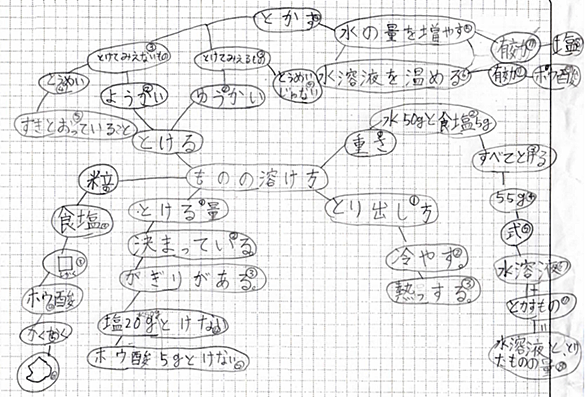 とかす
水の量を増やす
有効
塩
水溶液を温める
有効
ホウ酸
とけてみえないもの
とけてみえるもの
とうめい
ようかい
ゆうかい
とうめい
じゃない
すきとおっていること
とける
水50gと食塩5g
重さ
すべてとける
55g
式
水溶液
＝
とかすもの
＝
水溶液と、とけ
たものの量
ものの溶け方
粒
食塩
ホウ酸
かくかく
とける量
決まっている
かぎりがある。
塩20gとけない
ホウ酸5gとけない
とり出し方
冷やす。
熱っする。